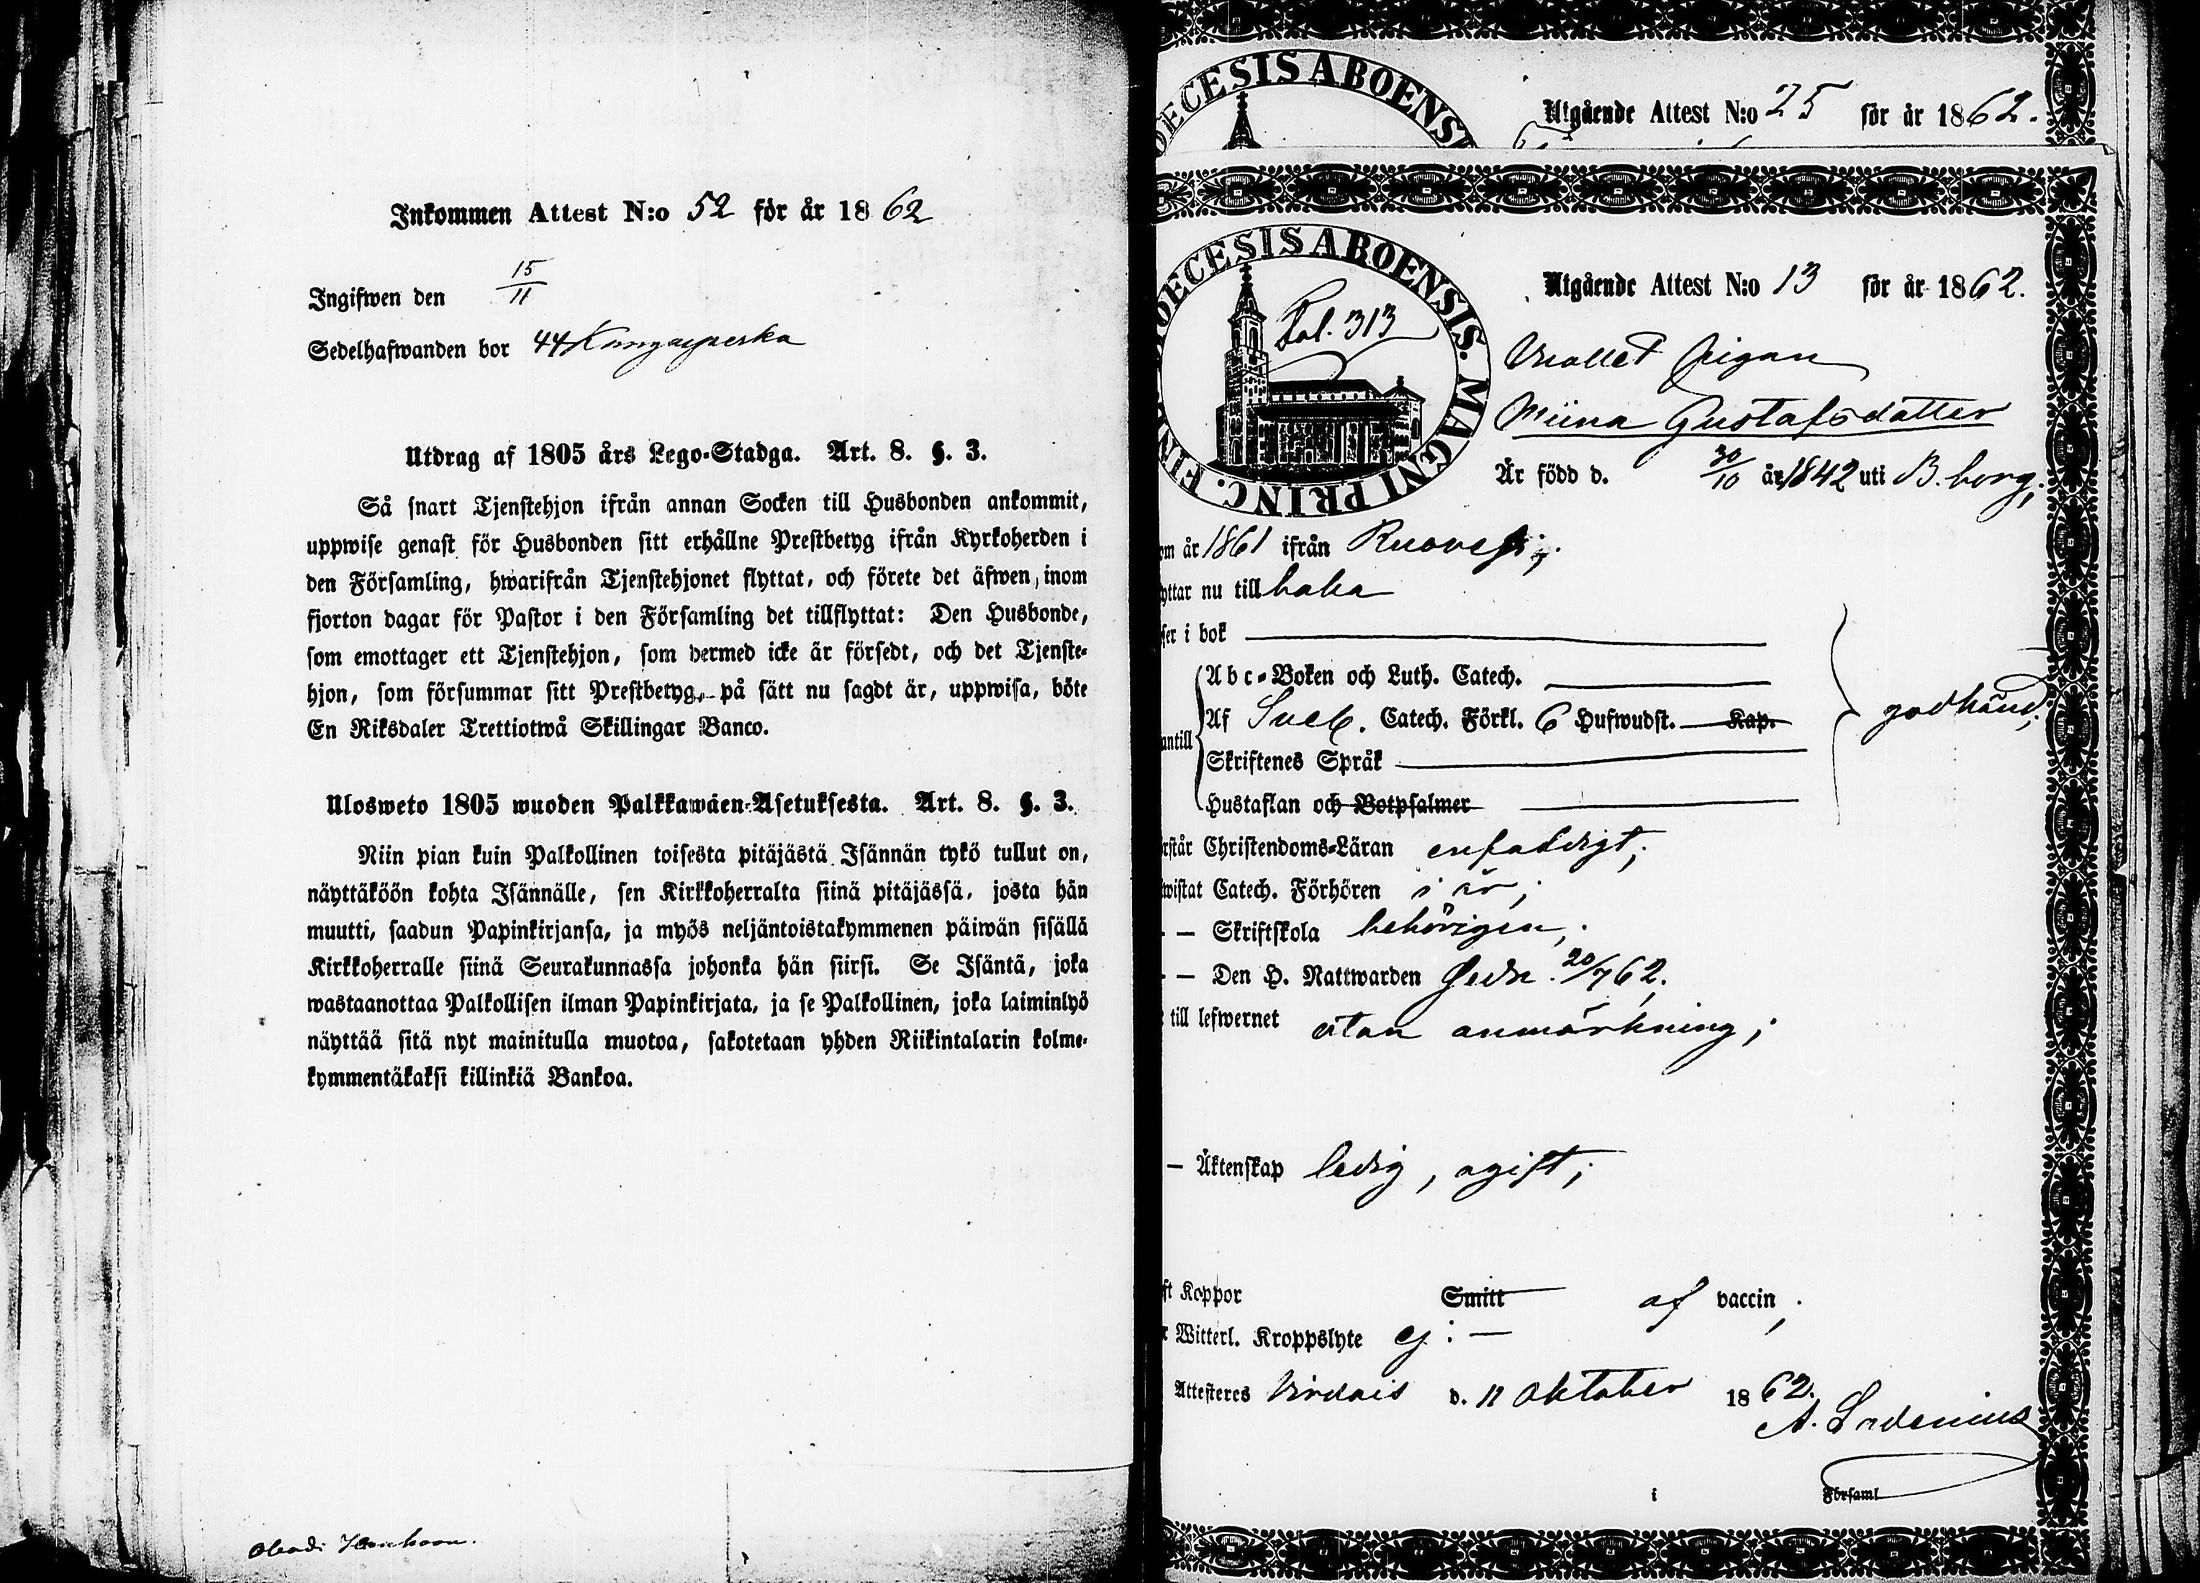 Inkommen Attest N:o 52 för år 1862
Ingifwen den 15/11
Sedelhafwanden bor 44
Utdrag af 1805 års Lego-Stadga. Art. 8. §. 3.
Så snart Tjenstehjon ifrån annan Socken till Husbonden ankommit,
uppwise genast för Husbonden sitt erhållne Prestbetyg ifrån Kyrkoherden i
den Församling, hwarifrån Tjenstehjonet flyttat, och förete det äfwen, inom
fjorton dagar för Pastor i den Församling det tillflyttat: Den Husbonde,
som emottager ett Tjenstehjon, som dermed icke är försedt, och det Tjenste-
hjon, som försummar sitt Prestbetyg, på sätt nu sagdt är, uppwisa, böte
En Riksdaler Trettiotwå Skillingar Banco.
Ulosweto 1805 wuoden Palkkawäen-Asetuksesta. Art. 8. §. 3.
Niin pian kuin Palkollinen toisesta pitäjästä Isännän tykö tullut on,
näyttäköön kohta Isännälle, sen Kirkkoherralta siinä pitäjässä, josta hän
muutti, saadun Papinkirjansa, ja myös neljäntoistakymmenen päiwän sisällä
Kirkkoherralle siinä Seurakunnassa johonka hän siirsi. Se Isäntä, joka
wastaanottaa Palkollisen ilman Papinkirjata, ja se Palkollinen, joka laiminlyö
näyttää sitä nyt mainitulla muotoa, sakotetaan yhden Riikintalarin kolme-
kymmentäkaksi killinkiä Bankoa.
DIOECESIS ABOENSIS
Utgående Attest N:o 25 för år 1862.
DIOECESIS ABOENSIS. MAGNI PRINC. FINL.
Fol. 313
Utgående Attest N:o 13 för år 1862.
Pigan
Miina Gustafsdotter
Är född d. 30/10 år 1842 uti B.borg;
om år 1861 ifrån Ruovesi;
yttar nu till baka
ser i bok
Abc-Boken och Luth. Catech.
Af Sveb. Catech. Förkl. 6 Hufwudst. Kap.
godkänd;
antill
Skriftenes Språk
Hustaflan och Botpsalmer
rstår Christendoms-Läran enfaldigt;
wistat Catech. Förhören i år;
- - Skriftskola behörigen;
- - Den H. Nattwarden sedn. 20/7 62.
till lefwernet utan anmärkning;
- Äktenskap ledig, ogift;
ft Koppor Smitt af vaccin;
r Witterl. Kroppslyte ej: -
Attesteres Virdois d. 11 Oktober 1862.
A. Ladenius
i Församl